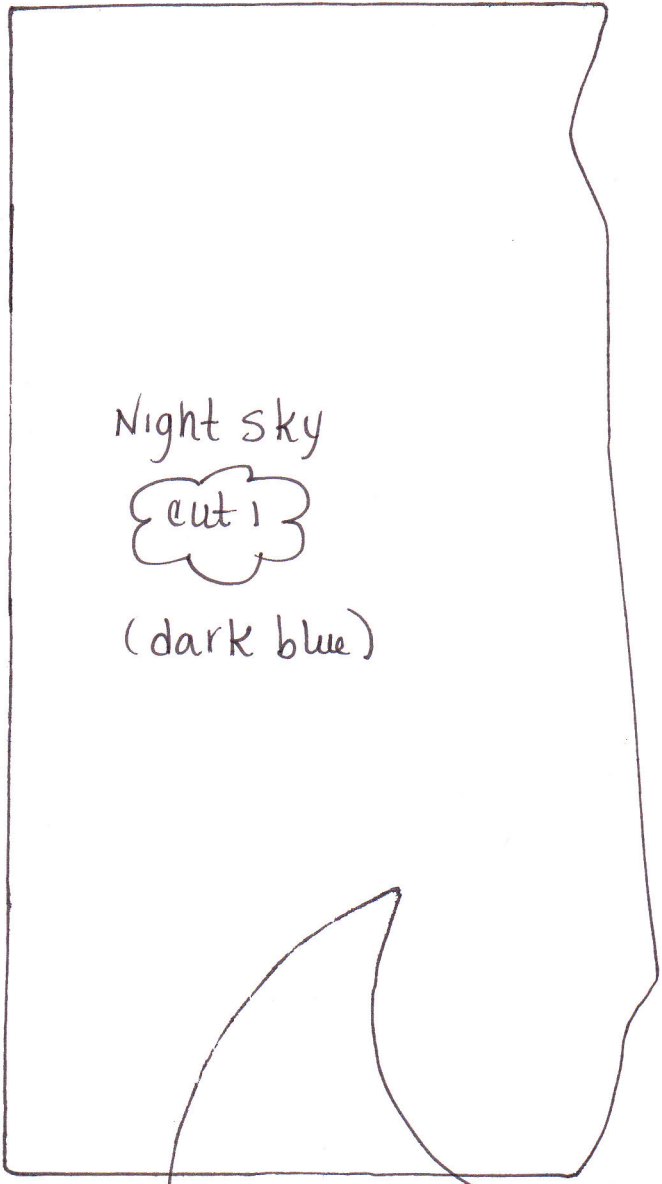 Night sky
cut 1
(dark blue)